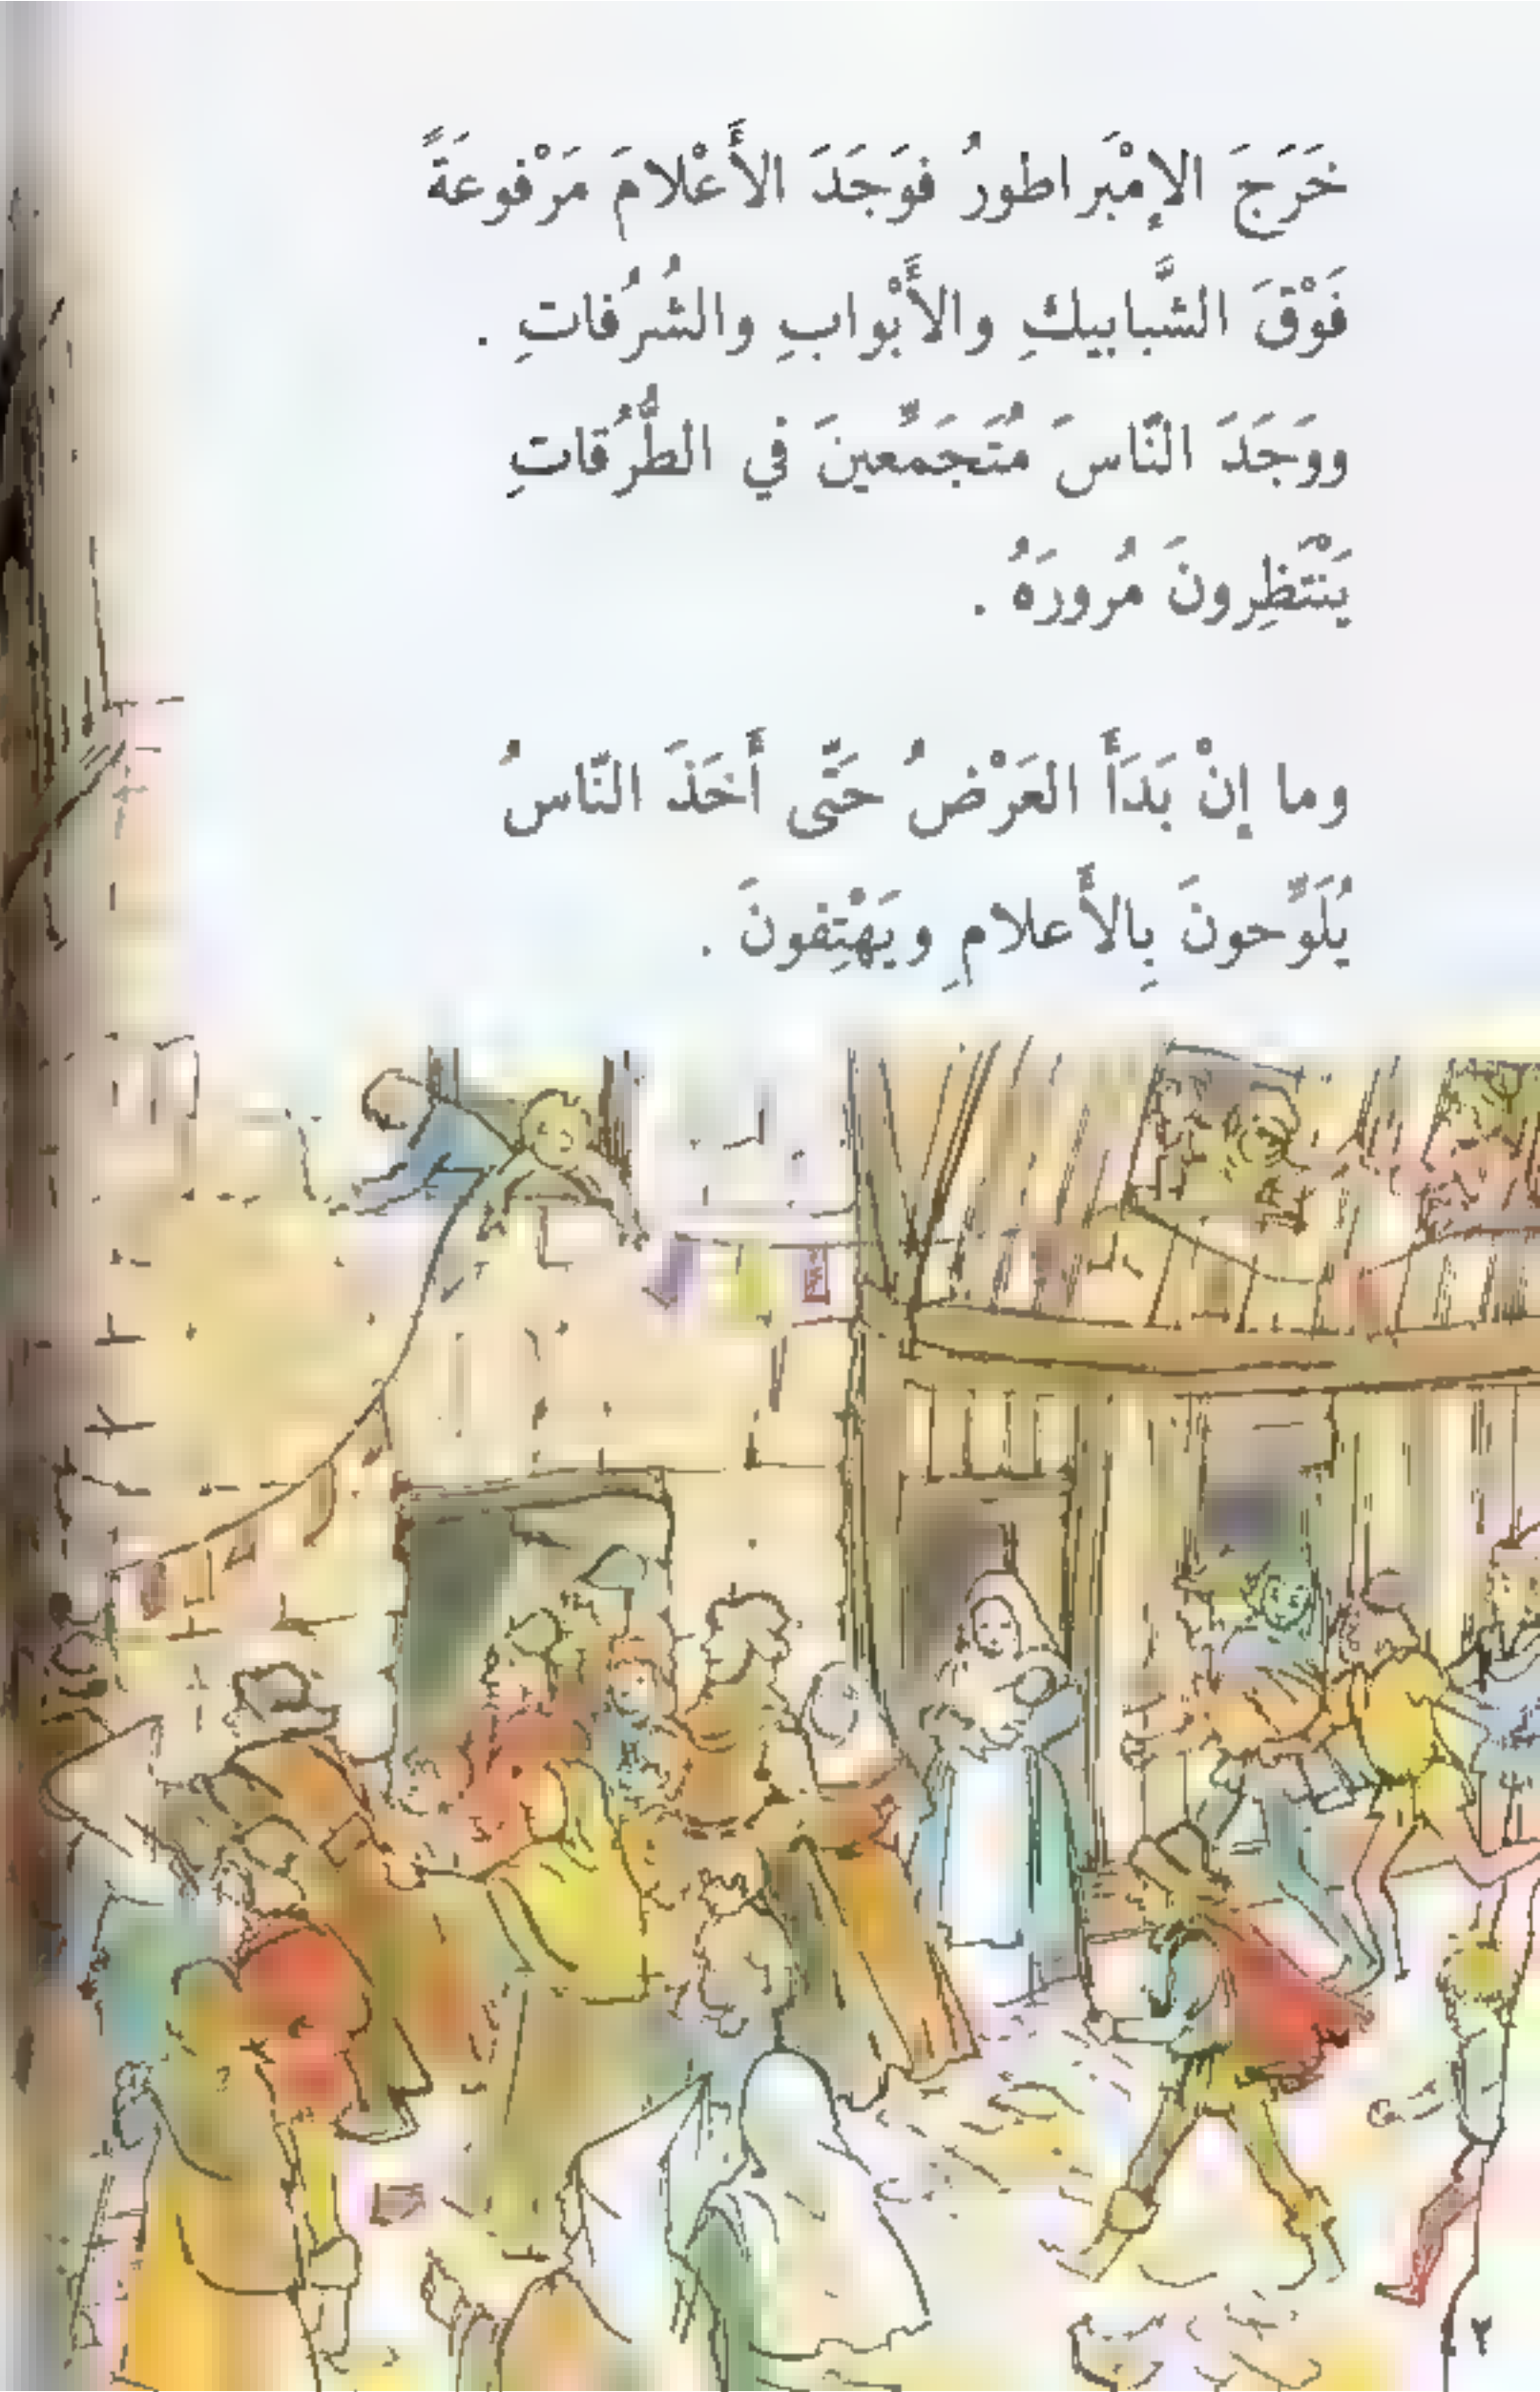 خَرَجَ الإمْبَراطورُ فوَجَدَ الأَعْلامَ مَرْفوعَةً
فَوْقَ الشَّبابيكِ والأَبْوابِ والشُرُفاتِ .
ووَجَدَ النّاسَ مُتَجَمِّعينَ في الطُّرُقاتِ
يَنْتَظِرونَ مُرورَهُ .
وما إنْ بَدَأَ العَرْضُ حَتّى أَخَذَ النّاسُ
يُلَوِّحونَ بِالأَعلامِ ويَهْتِفونَ .
٢